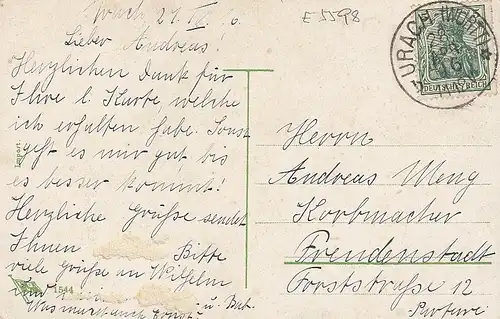 Urach, 21. IV. 6.
E 5598
Lieber Andreas!
Herzlichen Dank für
Ihre l. Karte, welche
ich erhalten habe. Sonst
geht es mir gut bis
es besser kommt!
Herzliche Grüße sendet
Ihnen Bitte
viele Grüße an Wilhelm
u.
Was macht auch Ernst?
Import.
1544
URACH (WÜRTT)
DEUTSCHES REICH
Herrn
Andreas Weng
Korbmacher
Freudenstadt
Forststraße 12
Parterre